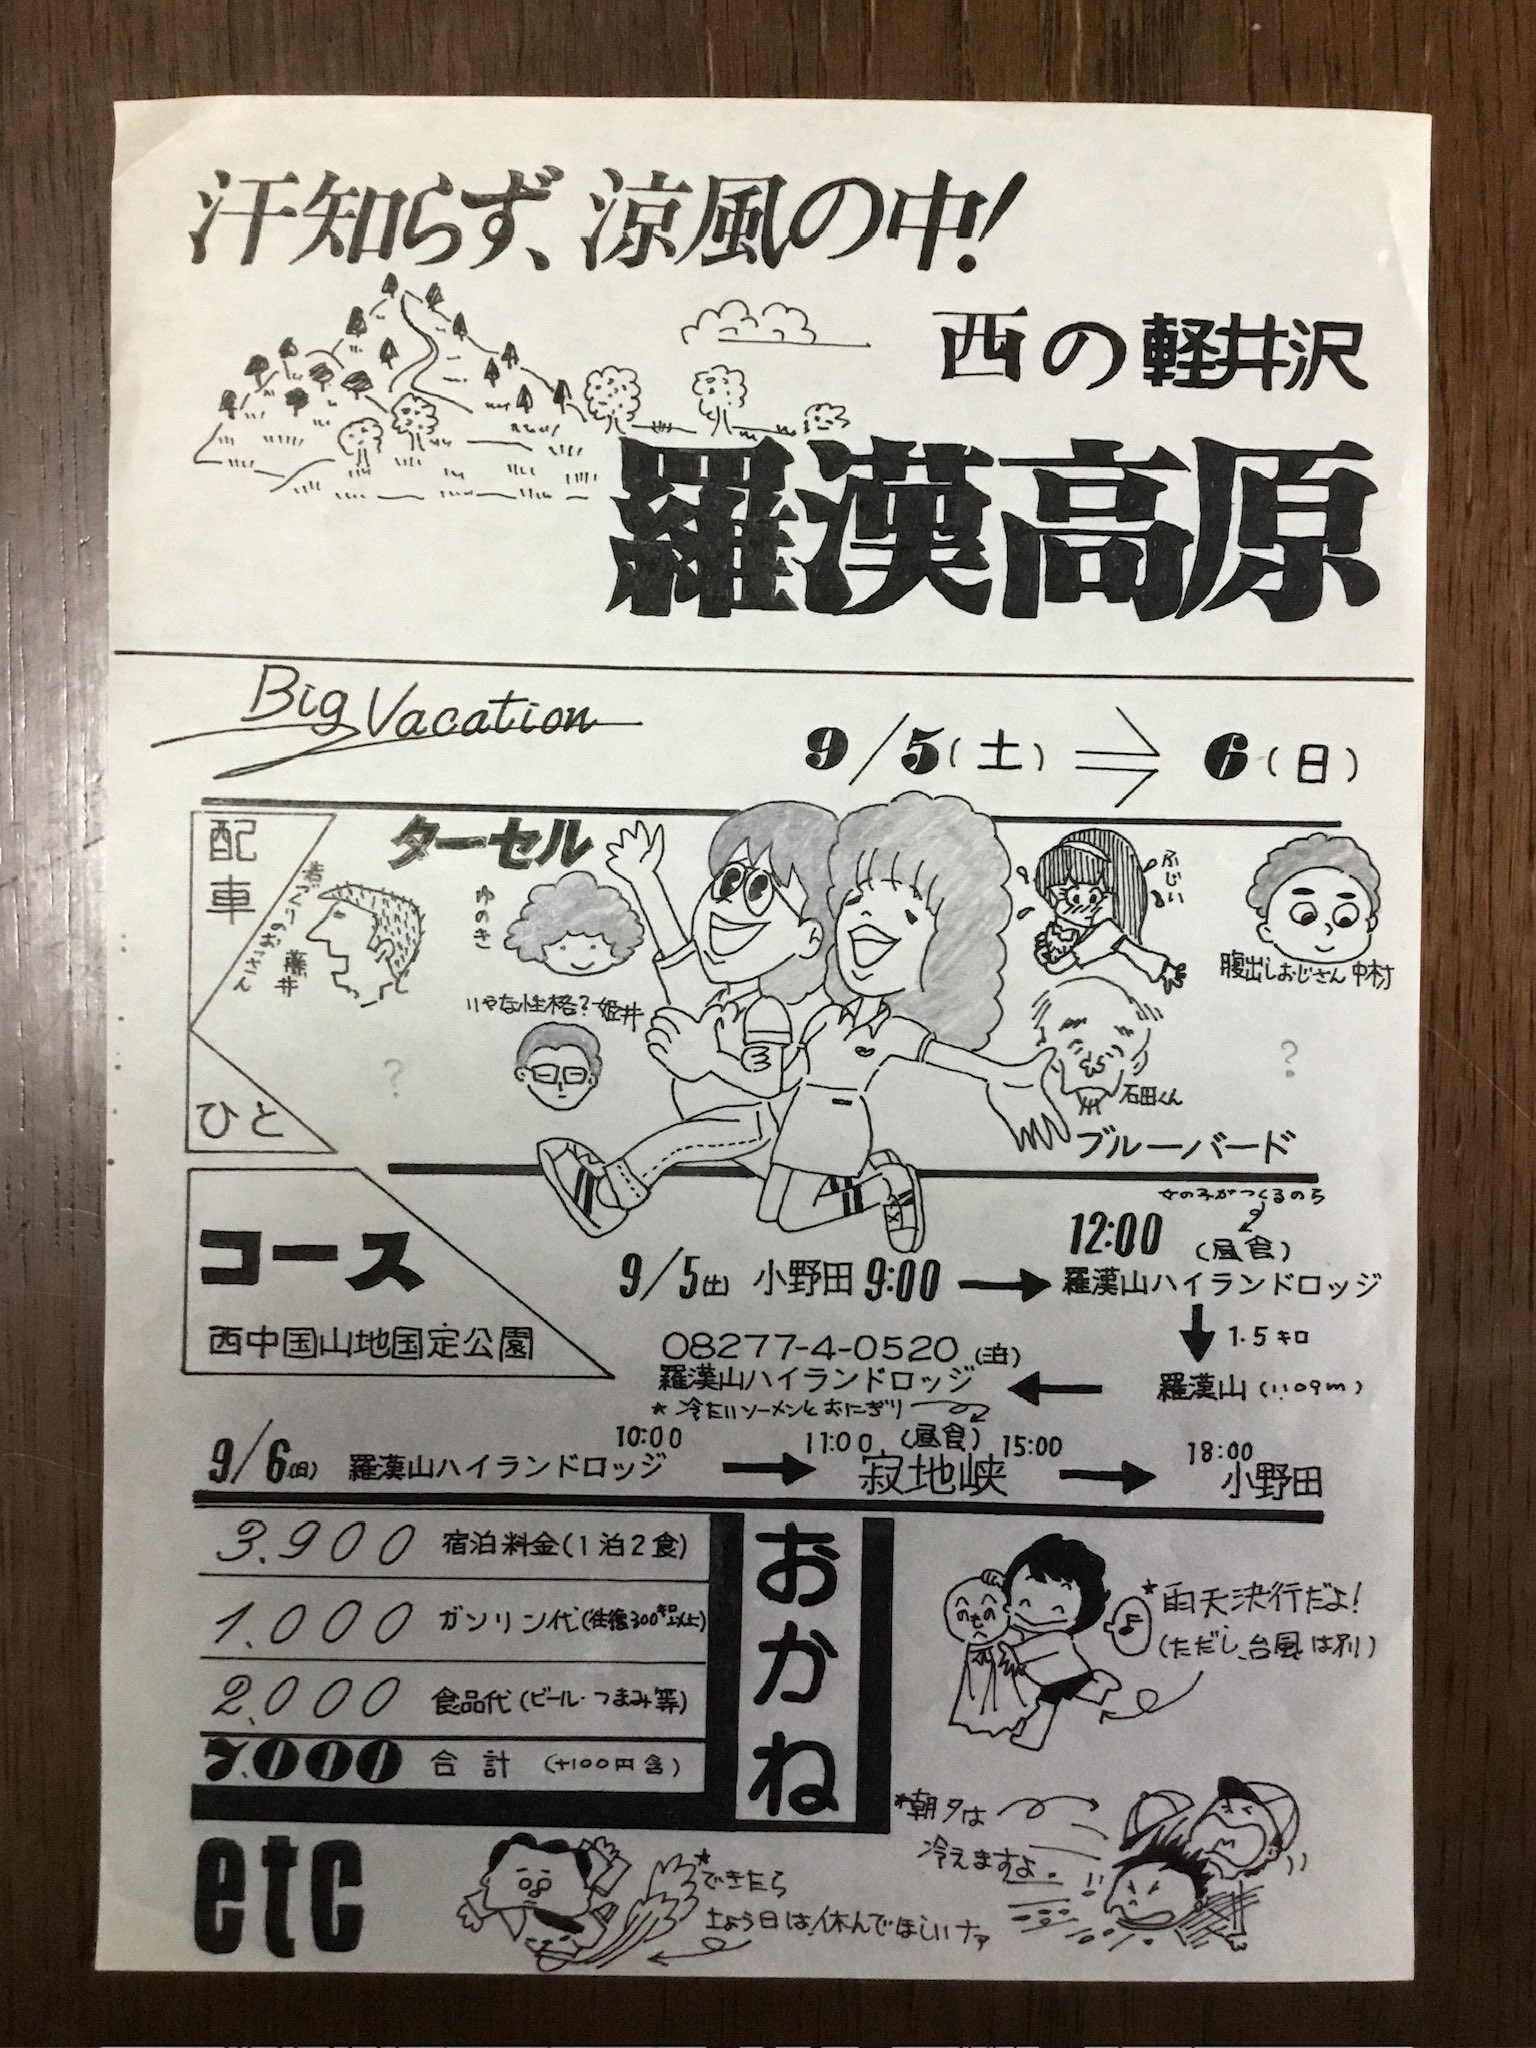 汗知らず、涼風の中!
西の軽井沢
羅漢高原
Big Vacation
9/5(土) ⇒ 6(日)
配車
ひと
ターセル
若づくりのおっさん
藤井
ゆのき
いやな性格?姫井
?
ふじい
腹出しおじさん 中村
石田くん
?
ブルーバード
コース
西中国山地国定公園
女の子がつくるのら
9/5(土) 小野田 9:00 → 12:00 (昼食)
羅漢山ハイランドロッジ
↓ 1.5キロ
羅漢山 (1109m)
←
08277-4-0520 (泊)
羅漢山ハイランドロッジ
★冷たいソーメンとおにぎり
9/6(日) 羅漢山ハイランドロッジ 10:00 → 11:00 (昼食) 15:00 寂地峡 → 18:00 小野田
おかね
3.900 宿泊料金(1泊2食)
1.000 ガソリン代(往復300キロ以上)
2.000 食品代(ビール・つまみ等)
7.000 合計 (+100円含)
★雨天決行だよ!
(ただし、台風は別)
♪
*朝夕は
冷えますよ。
etc
★できたら
土よう日は休んでほしいナァ